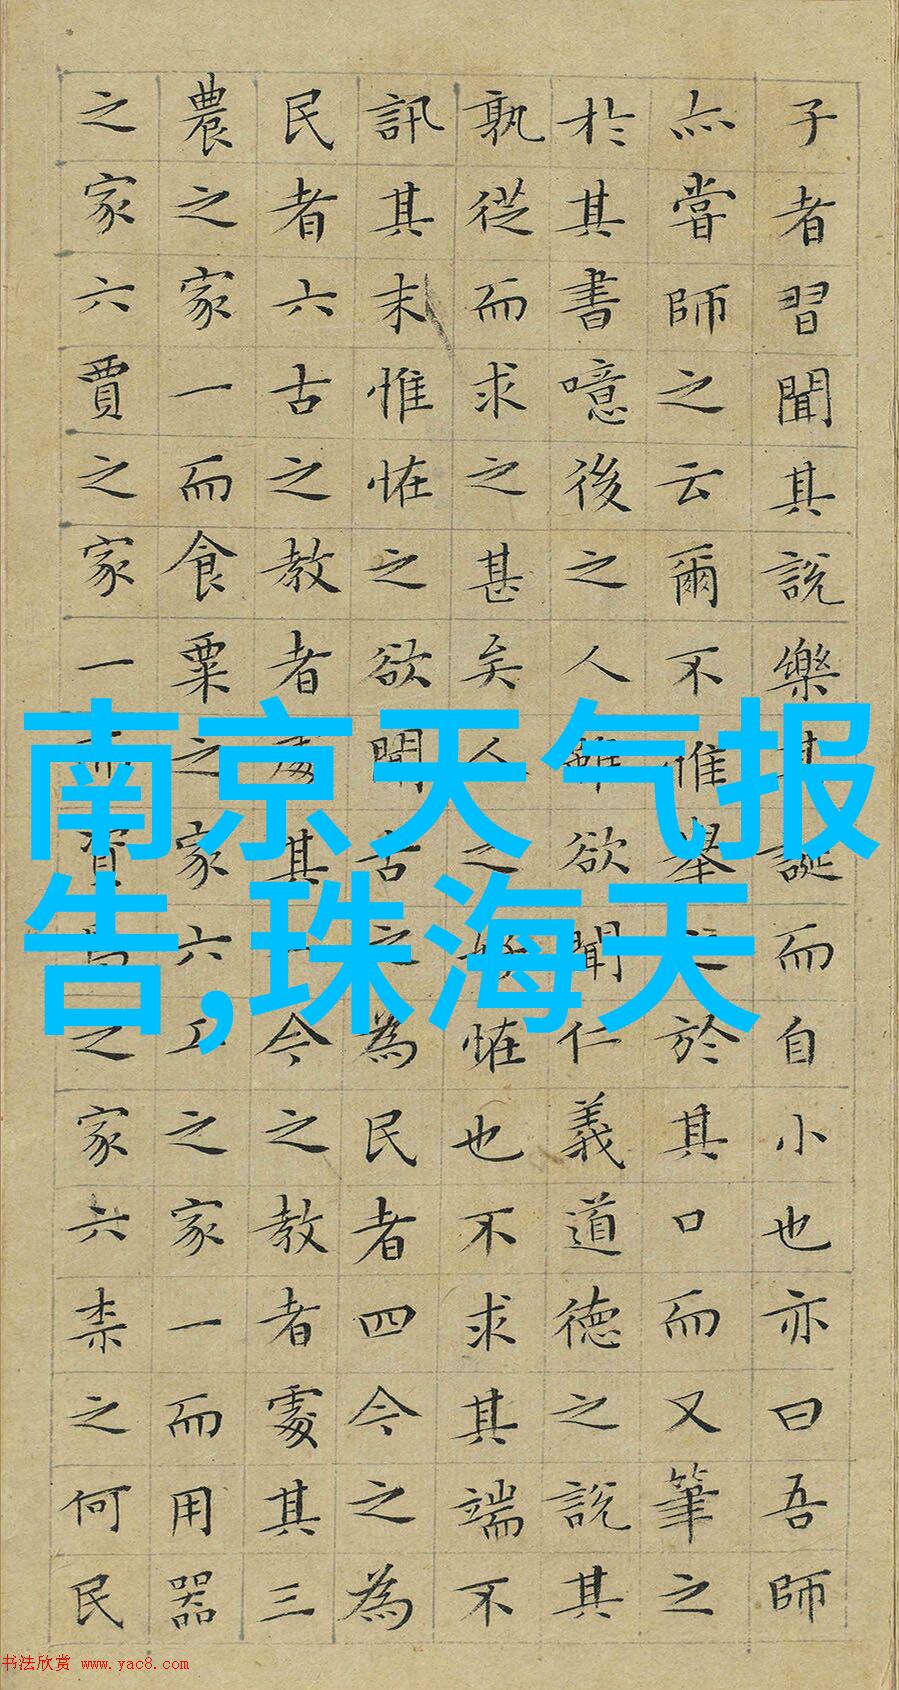 子者習聞其說樂其誕而自小也亦曰吾師
亦嘗師之云爾不惟舉之於其口而又筆之
於其書噫後之人雖欲聞仁義道德之說其
孰從而求之甚矣人之好恠也不求其端不
訊其末惟恠之欲聞古之為民者四今之為
民者六古之教者處其一今之教者處其三
農之家一而食粟之家六工之家一而用器
之家六賈之家一而資焉之家六柰之何民
南京天气报
告,珠海天
书法欣赏 www.yac8.com